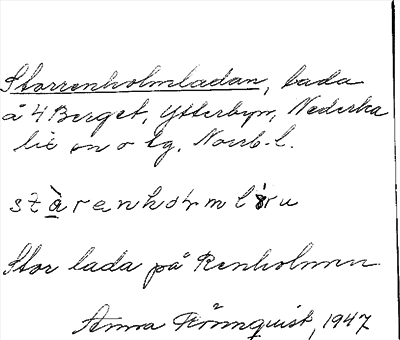 Storrenholmladan, lada
å 4 Berget, Ytterbyn, Nederka
lix sn o tg, Norrb. l.
stàrenhòrmlòru
Stor lada på Renholmen
Anna Rönnquist, 1947